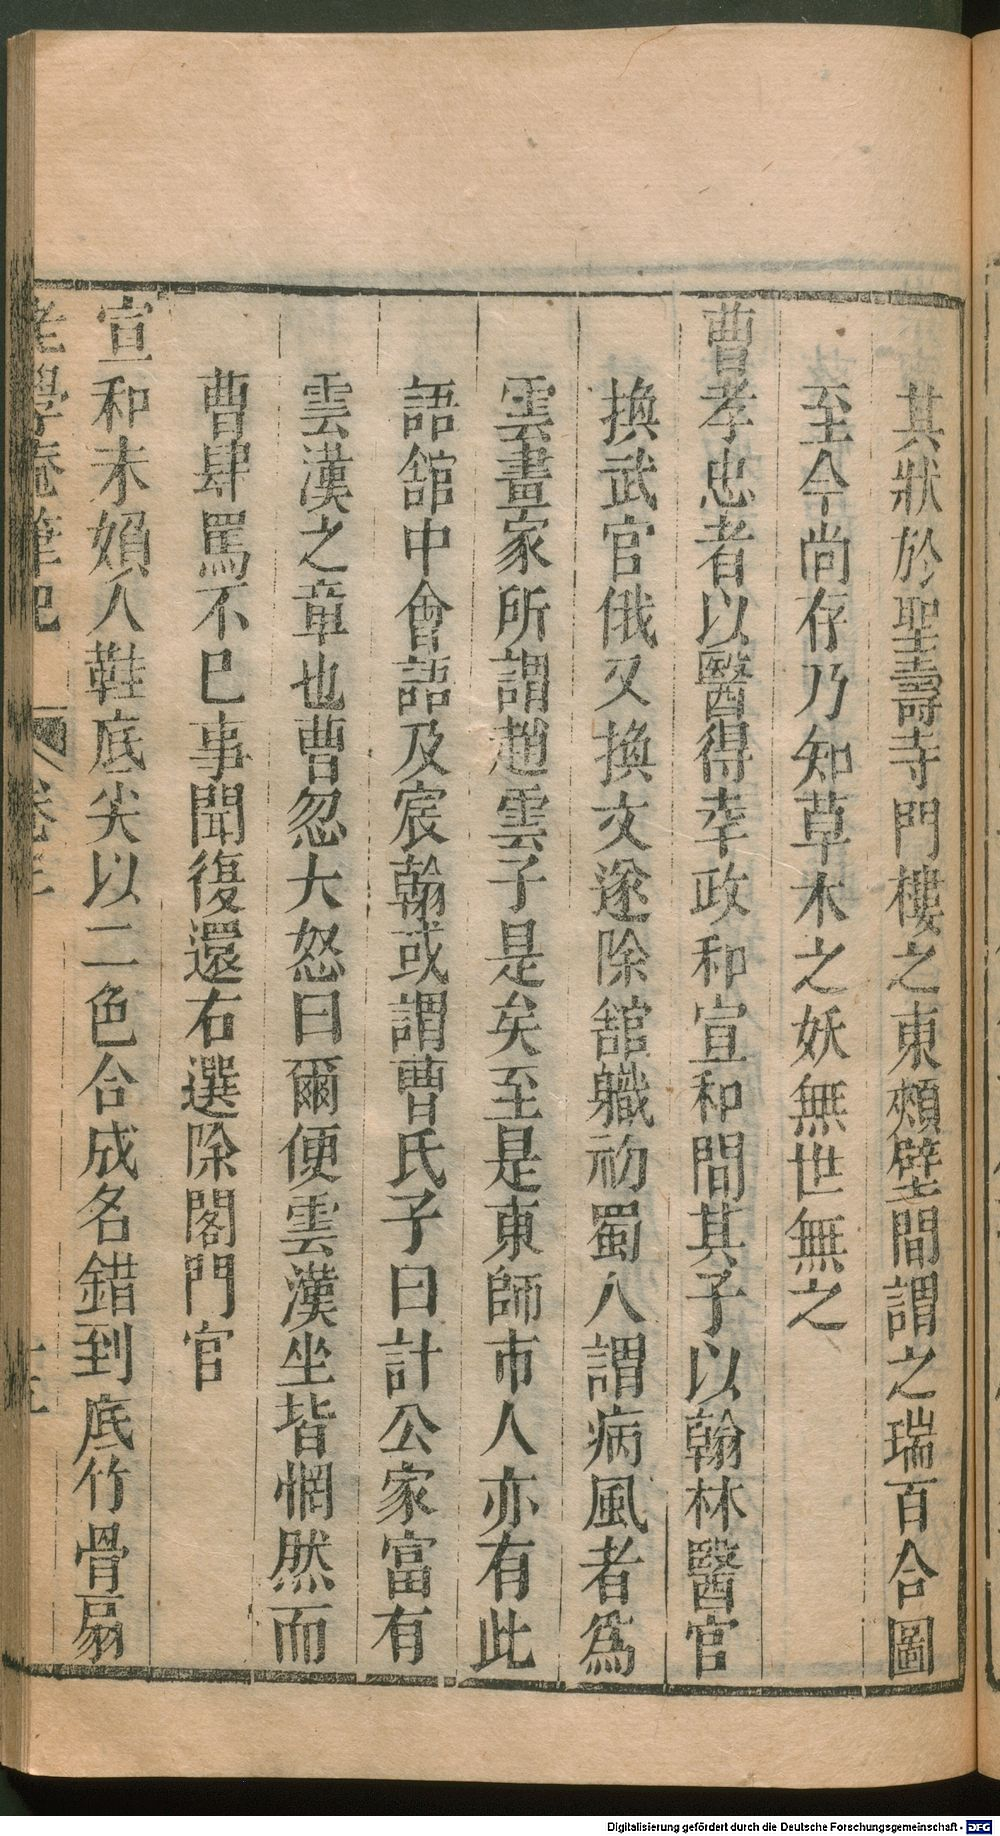 其狀於聖壽寺門樓之東頰壁間謂之瑞百合圖
至今尚存乃知草木之妖無世無之
曹孝忠者以醫得幸政和宣和間其子以翰林醫官
換武官俄又換文遂除舘職初蜀人謂病風者為
雲畫家所謂趙雲子是矣至是東師市人亦有此
語舘中會語及宸翰或謂曹氏子曰計公家富有
雲漢之章也曹忽大怒曰爾便雲漢坐皆惘然而
曹肆罵不巳事聞復還右選除閣門官
宣和末婦人鞋底尖以二色合成名錯到底竹骨扇
老學庵筆記 卷三 十五
Digitalisierung gefördert durch die Deutsche Forschungsgemeinschaft - DFG